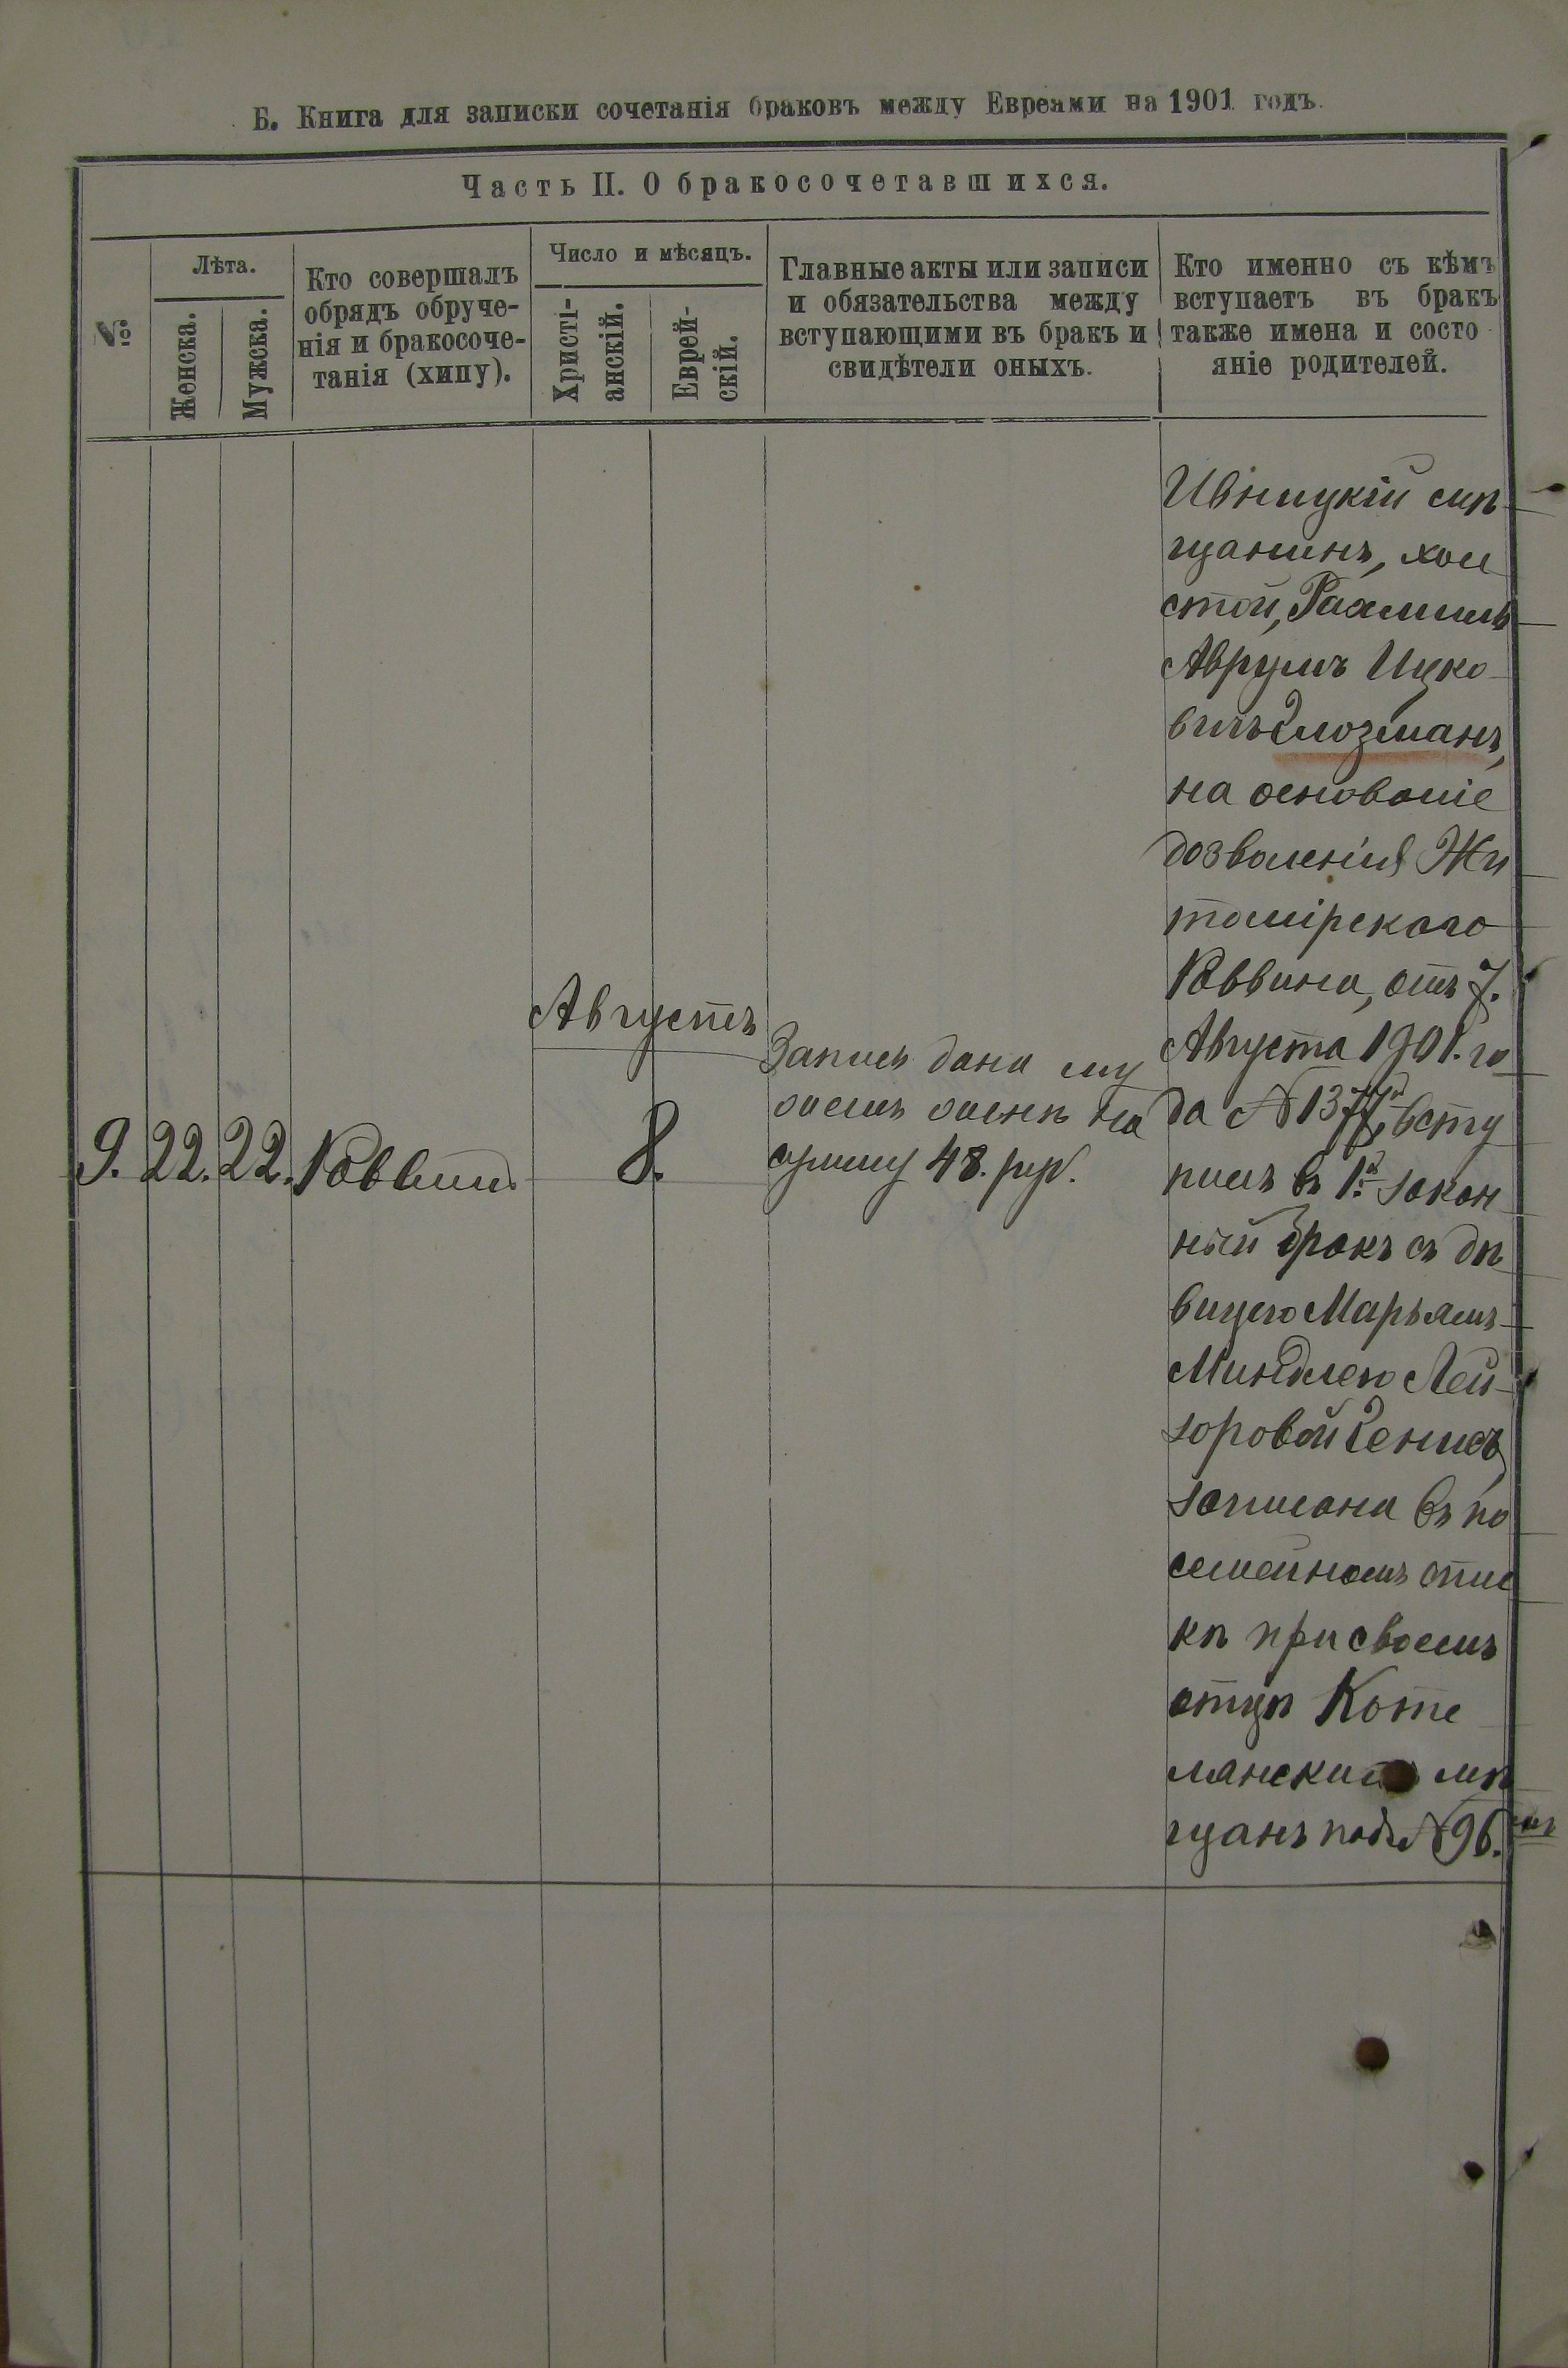 Б. Книга для записки сочетанія браковъ между Евреями на 1901 годъ.
Часть II. О бракосочетавшихся.
№
Лѣта.
Женска.
Мужска.
Кто совершалъ
обрядъ обруче-
нія и бракосоче-
танія (хипу).
Число и мѣсяцъ.
Христі-
анскій.
Еврей-
скій.
Главные акты или записи
и обязательства между
вступающими въ бракъ и
свидѣтели оныхъ.
Кто именно съ кѣмъ
вступаетъ въ бракъ
также имена и состо
яніе родителей.
9.
22.
22.
Раввинъ
Августъ
8.
Запись дана му
жемъ женѣ на
сумму 48. руб.
Ивницкій мѣ
щанинъ, холо
стой, Рахмиль
Аврумъ Ицко
вичъ Глозманъ,
на основаніе
дозволенія Жи
томірскаго
Раввина, отъ 7.
Августа 1901. го
да № 1377, всту
пилъ въ 1й закон
ный бракъ съ дѣ
вицею Марьямъ
Минделею Лей
зоровой Генисъ,
записана въ по
семейномъ спис
кѣ при своемъ
отцѣ Коте
лянскихъ мѣ
щанъ подъ № 96.